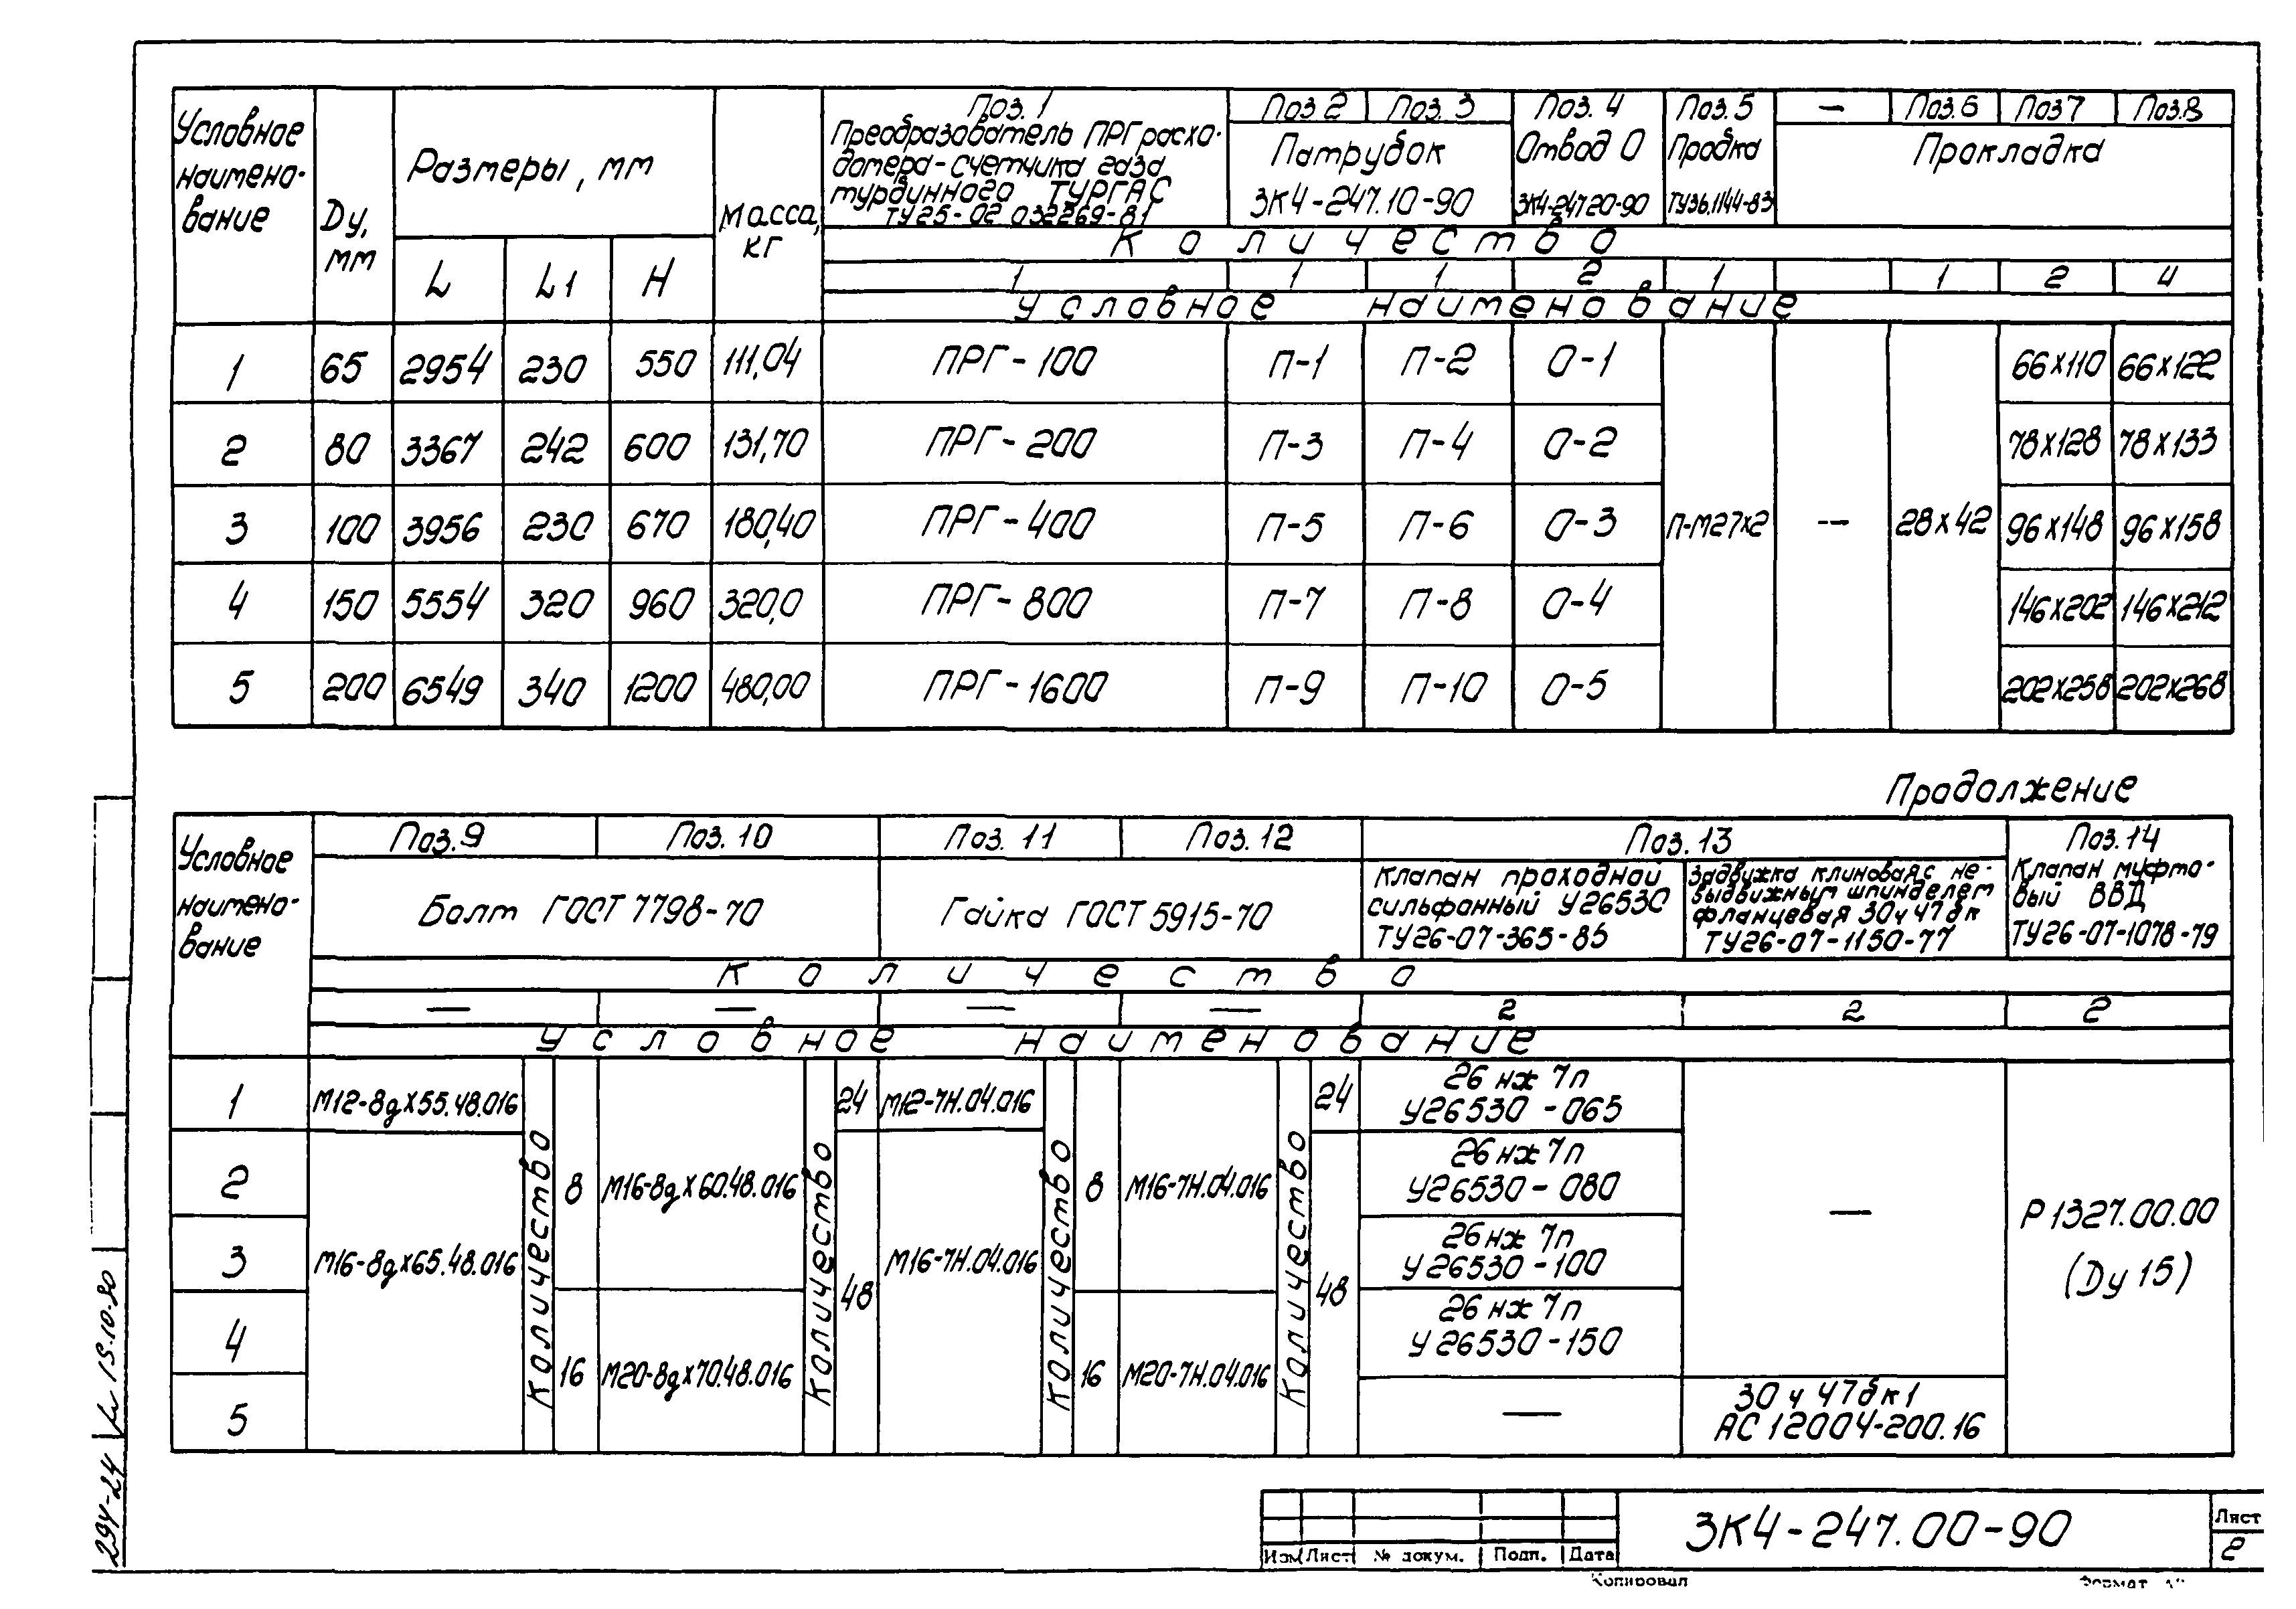 Условное наимено-вание
Ду, мм
Размеры, мм
L L1 H
Масса, кг
Поз. 1
Преобразователь ПРГ расхо-
домера-счетчика газа
турбинного ТУРГАС
ТУ25-02.032269-81
Поз 2 Поз. 3
Патрубок
ЗК4-247.10-90
Поз. 4
Отвод О
ЗК4-247.20-90
Поз. 5
Пробка
ТУ36.1144-83
— Поз.6 Поз7 Поз.8
Прокладка
Количество
1 1 1 2 1 1 2 4
Условное наименование
1 65 2954 230 550 111,04 ПРГ-100 П-1 П-2 О-1 66х110 66х122
2 80 3367 242 600 131,70 ПРГ-200 П-3 П-4 О-2 78х128 78х133
3 100 3956 230 670 180,40 ПРГ-400 П-5 П-6 О-3 П-М27х2 — 28х42 96х148 96х158
4 150 5554 320 960 320,0 ПРГ-800 П-7 П-8 О-4 146х202 146х212
5 200 6549 340 1200 480,00 ПРГ-1600 П-9 П-10 О-5 202х258 202х268
Продолжение
Условное наимено-вание
Поз.9 Поз.10 Поз. 11 Поз.12 Поз.13 Поз.14
Болт ГОСТ 7798-70
Гайка ГОСТ 5915-70
Клапан проходной
сильфонный У26530
ТУ26-07-365-85
Задвижка клиновая с не-
выдвижным шпинделем
фланцевая 30ч47бк
ТУ26-07-1150-77
Клапан муфто-
вый ВВД
ТУ26-07-1078-79
Количество
— — — — 2 2 2
Условное наименование
1 М12-8gх55.48.016 24 М12-7Н.04.016 24 26нж7п
У26530-065
2 Количество 8 М16-8gх60.48.016 Количество Количество 8 М16-7Н.04.016 Количество 26нж7п
У26530-080
— Р1327.00.00
(Ду 15)
3 М16-8gх65.48.016 48 М16-7Н.04.016 48 26нж7п
У26530-100
4 26нж7п
У26530-150
16 М20-8gх70.48.016 16 М20-7Н.04.016
5 — 30ч47бк1
АС12004-200.16
294-24
15.10.90
Изм Лист № докум. Подп. Дата
ЗК4-247.00-90
Лист
2
Копировал
Формат